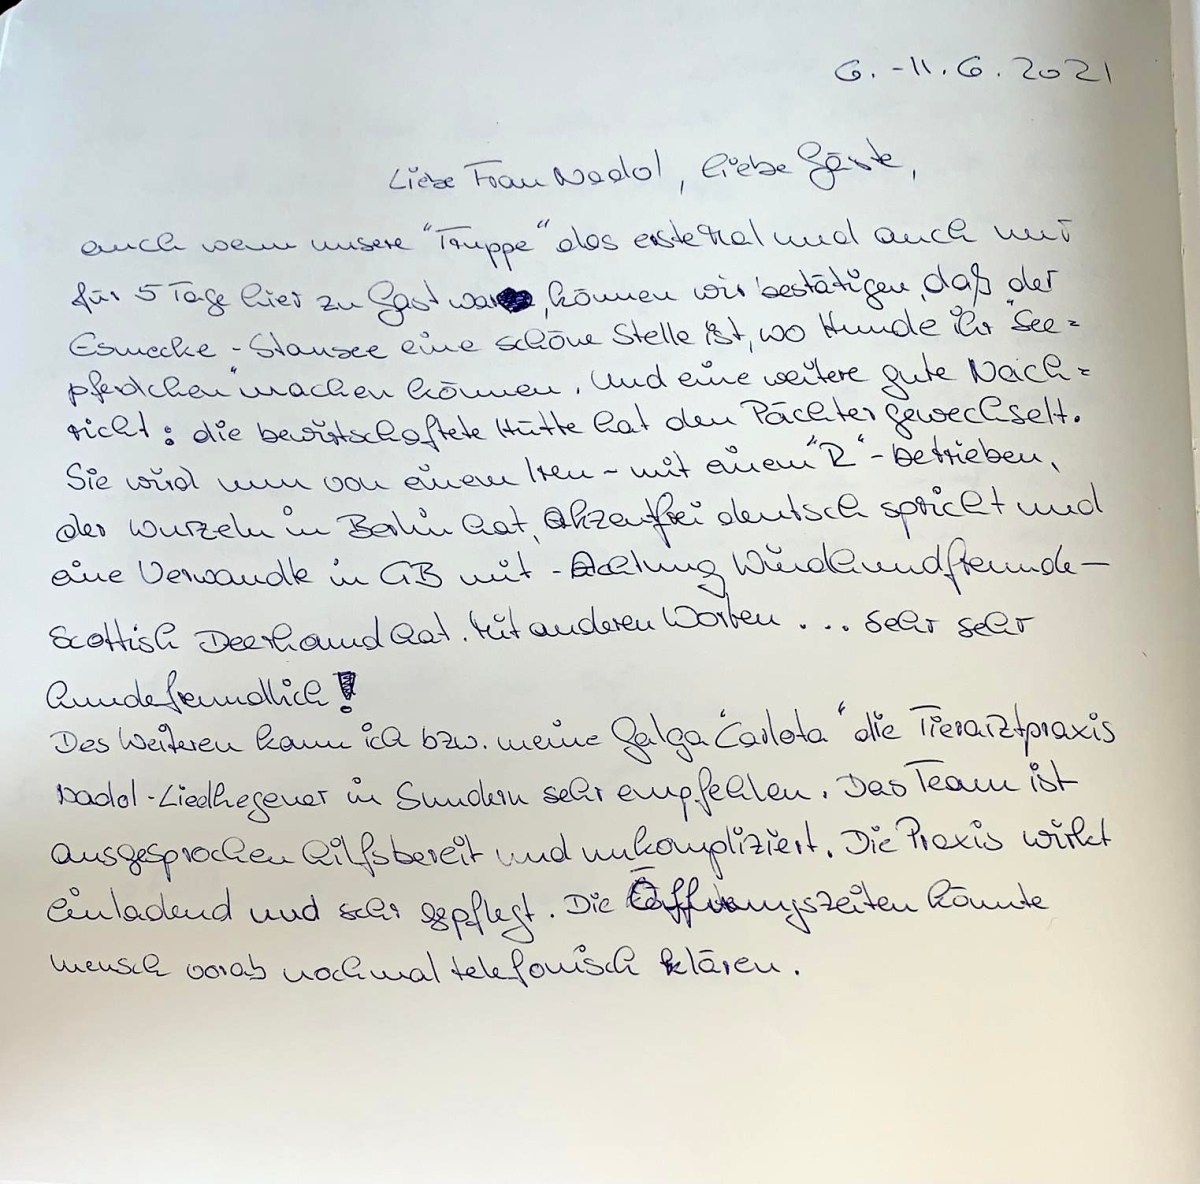 6. - 11. 6. 2021
Liebe Frau Nadol, liebe Gäste,
auch wenn unsere "Truppe" das erste Mal und auch nur
für 5 Tage hier zu Gast war, können wir bestätigen, daß der
Esmecke-Stausee eine schöne Stelle ist, wo Hunde ihr "See=
pferdchen" machen können. Und eine weitere gute Nach=
richt: die bewirtschaftete Hütte hat den Pächter gewechselt.
Sie wird nun von einem Iren - mit einem "R" - betrieben,
der Wurzeln in Berlin hat, akzentfrei deutsch spricht und
eine Verwandte in GB mit - Achtung Windhundfreunde -
Scottish Deerhound hat. Mit anderen Worten ... sehr sehr
hundefreundlich!
Des Weiteren kann ich bzw. meine Galga "Carlota" die Tierarztpraxis
Nadol-Liedhegener in Sundern sehr empfehlen. Das Team ist
ausgesprochen hilfsbereit und unkompliziert. Die Praxis wirkt
einladend und sehr gepflegt. Die Öffnungszeiten könnte
mensch vorab nochmal telefonisch klären.